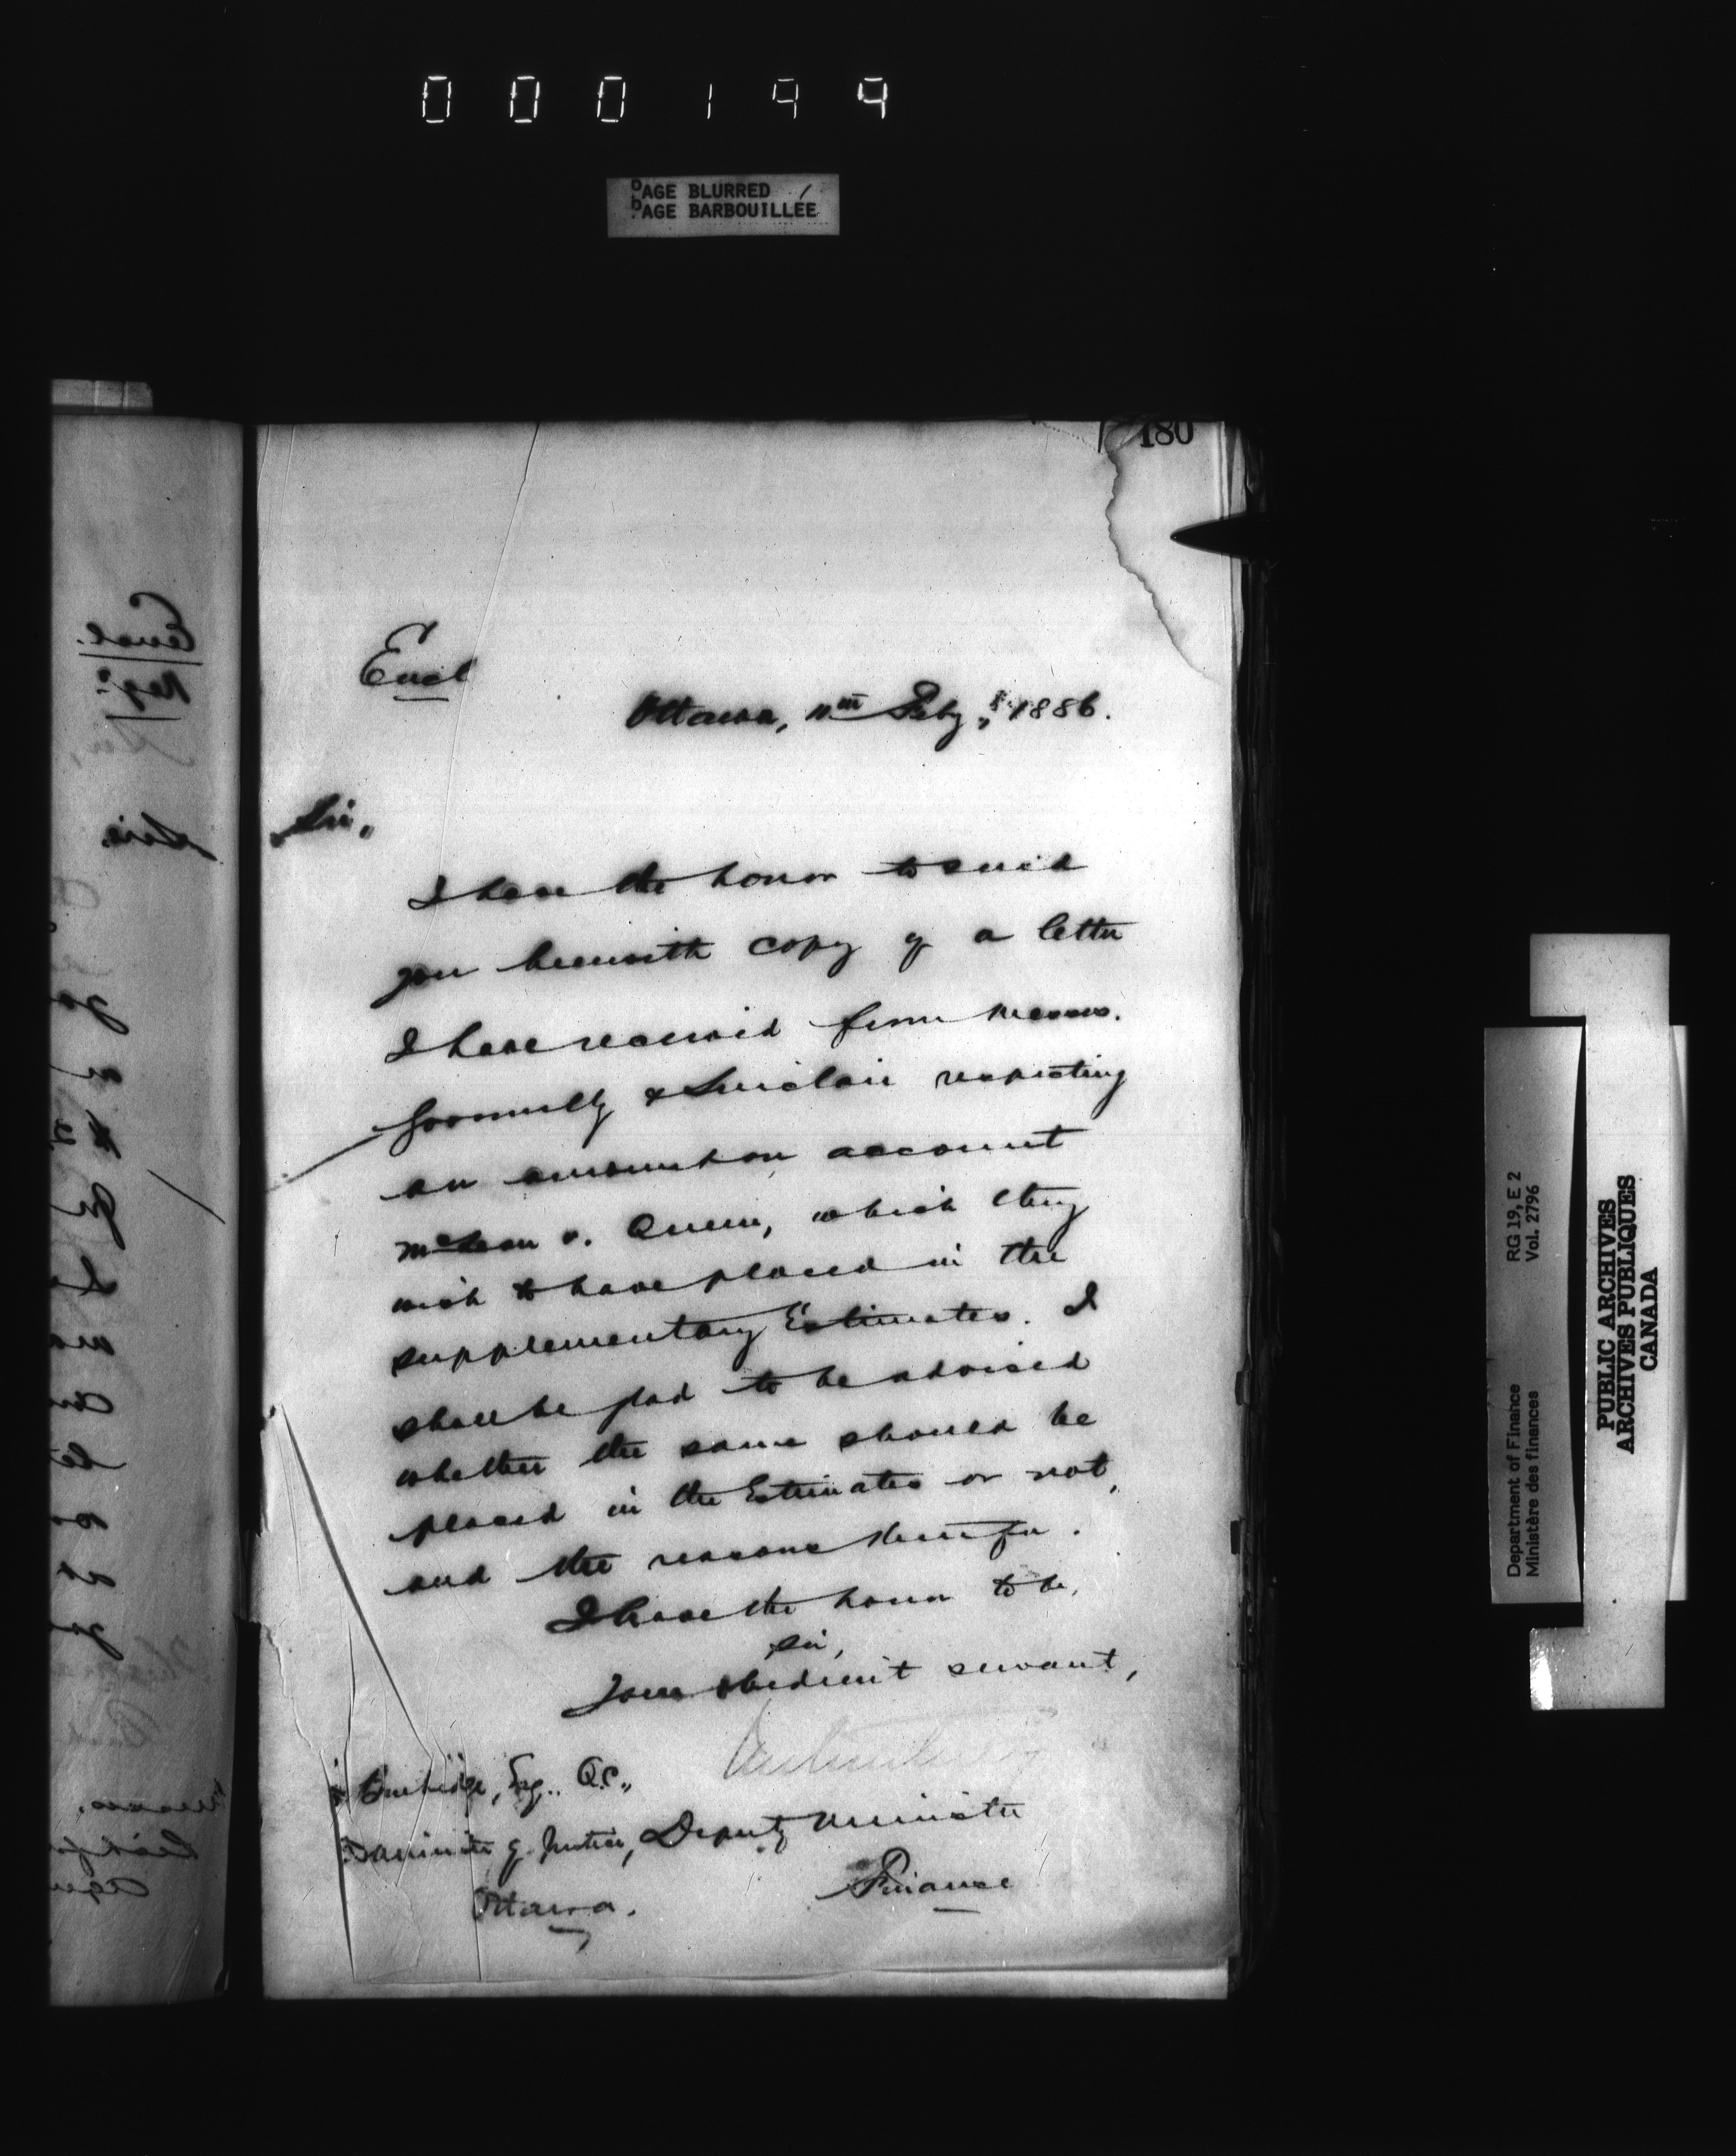 000199
PAGE BLURRED
PAGE BARBOUILLÉE
180
Encl
Ottawa, 11th Feby, 1886.
Sir,
I have the honor to send
you herewith copy of a letter
I have received from Messrs.
Gormully & Sinclair respecting
an account
McLean v. Queen, which they
wish to have placed in the
supplementary Estimates. I
shall be glad to be advised
whether the same should be
placed in the Estimates or not,
and the reasons therefor.
I have the honor to be,
Sir,
Your obedient servant,
Burbidge, Esq., Q.C.,
of Justice, Deputy Minister
Finance
Ottawa.
Department of Finance RG 19, E 2
Ministère des finances Vol. 2796
PUBLIC ARCHIVES
ARCHIVES PUBLIQUES
CANADA